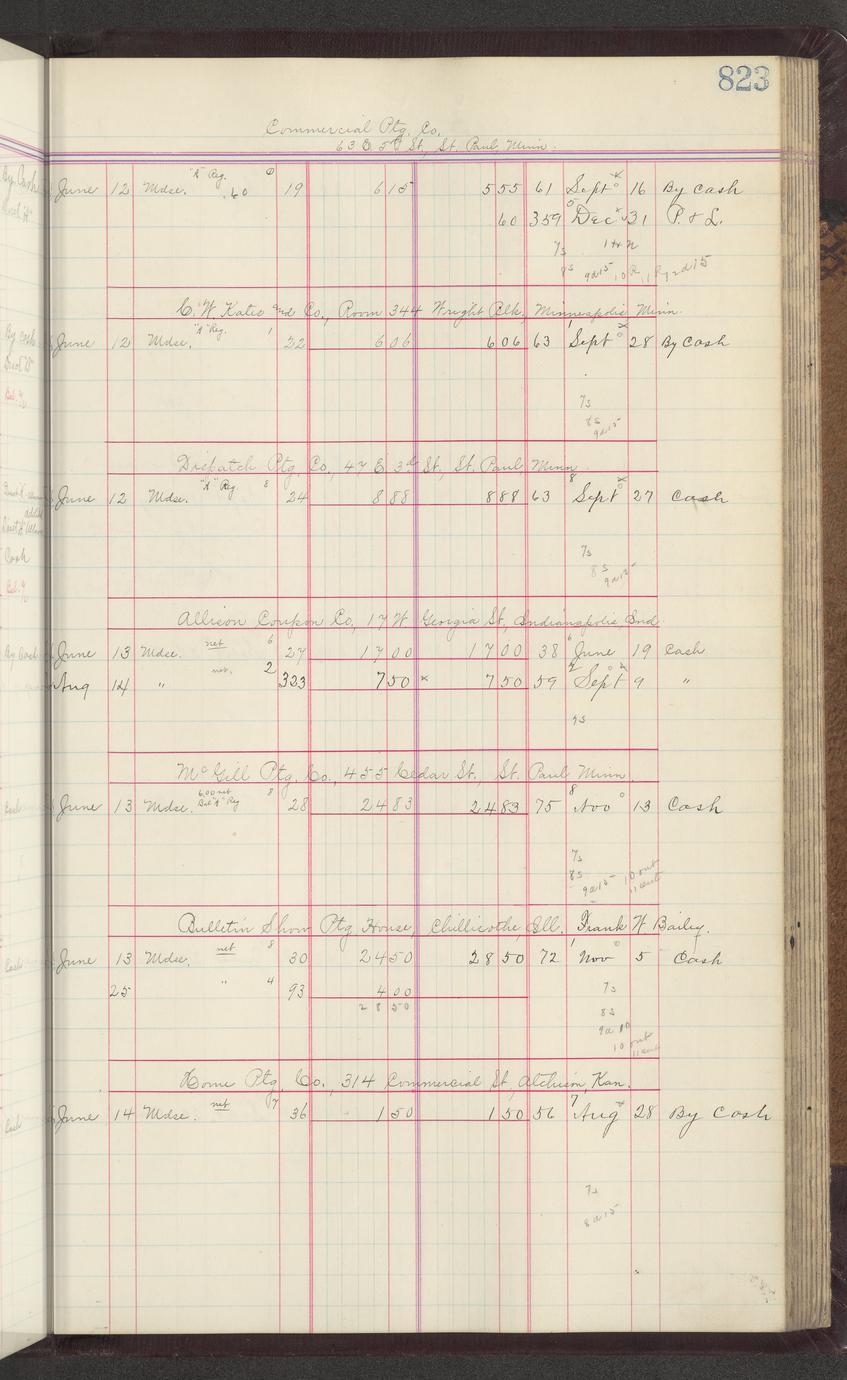 823
Commercial Ptg. Co.
63 E 5th St., St. Paul Minn.
June 12 Mdse. "A" Reg. .60 19 6 15 5 55 61 Sept 16 By Cash
60 359 Dec 31 P. & L.
7s
8s 9a15
C. W. and Co., Room 344 Wright Blk, Minneapolis Minn.
June 12 Mdse. "A" Reg. 1 22 6 06 6 06 63 1 Sept 28 By Cash
7s
8s
9a15
Dispatch Ptg. Co., 47 E 3d St., St. Paul, Minn.
June 12 Mdse. "A" Reg 8 24 8 88 8 88 63 8 Sept 27 Cash
7s
8s
9a15
Allison Coupon Co., 17 W Georgia St., Indianapolis, Ind
June 13 Mdse. net 6 27 17 00 17 00 38 6 June 19 Cash
Aug 14 " net. 2 323 7 50 x 7 50 59 2 Sept 9 "
7s
McGill Ptg. Co., 455 Cedar St., St. Paul Minn.
June 13 Mdse. 6.00 net Bal "A" Reg 8 28 24 83 24 83 75 8 Nov 13 Cash
7s
8s
9a15 10 out
11 out
Bulletin Show Ptg House, Chillicothe, Ill. Frank W Bailey.
June 13 Mdse. net 8 30 24 50 28 50 72 1 Nov 5 Cash
25 " 4 93 4 00
28 50
7s
8s
9a 10
10 out
11 out
Home Ptg. Co., 314 Commercial St, Atchison, Kan.
June 14 Mdse. net 7 36 1 50 1 50 56 7 Aug 28 By Cash
7s
8a15